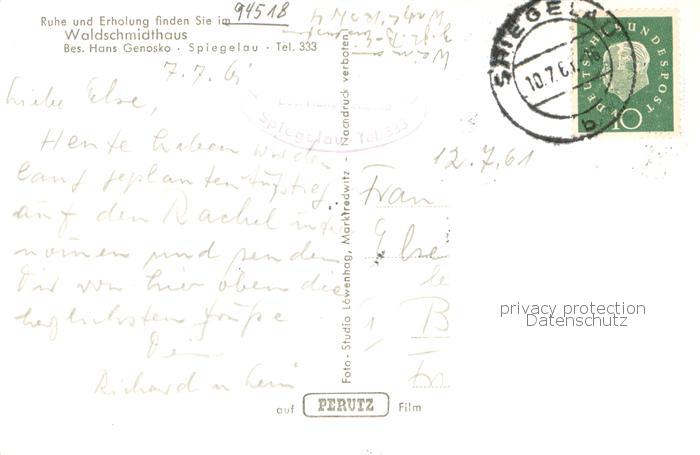 94518
Ruhe und Erholung finden Sie im
Waldschmidthaus
Bes. Hans Genosko - Spiegelau - Tel. 333
7.7.61
Liebe Else,
Heute haben wir den
lang geplanten Aufstieg
auf den Rachel
nommen und senden
Dir von hier oben die
herzlichsten Grüße
Dein
Richard u.
Spiegelau - Tel 333
Foto - Studio Löwenhag, Marktredwitz - Nachdruck verboten
SPIEGELAU
10.7.61
b
DEUTSCHE BUNDESPOST
10
12.7.61
Frau
Else
B
privacy protection
Datenschutz
auf PERUTZ Film